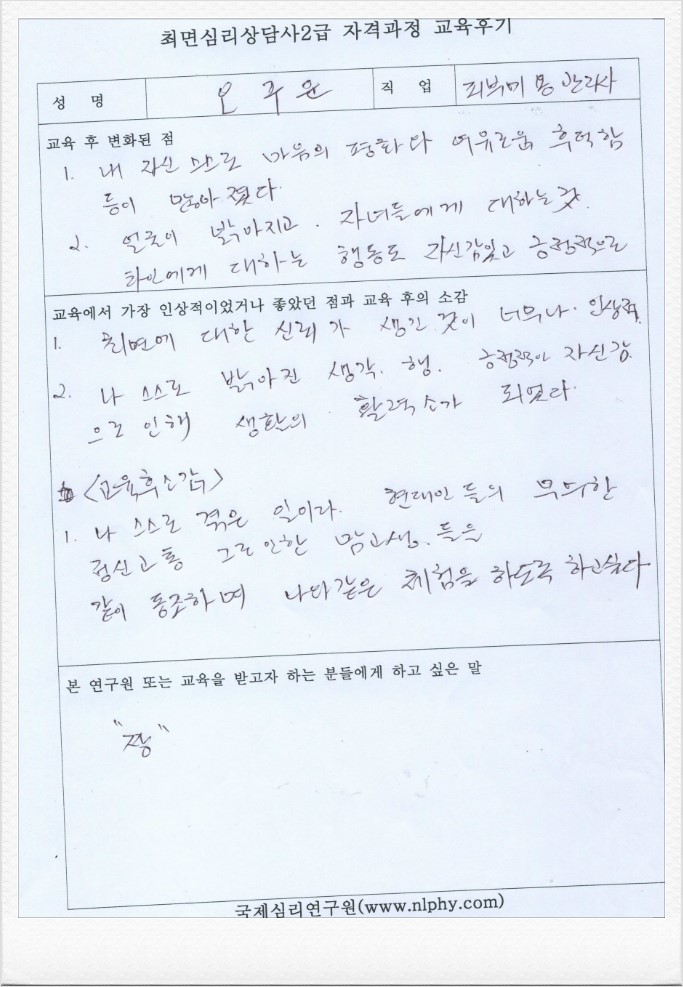 최면심리상담사2급 자격과정 교육후기
성 명 오 주 윤 직 업 피부미용 관리사
교육 후 변화된 점
1. 내 자신 스스로 마음의 평화와 여유로움 후덕함
등이 많아 졌다.
2. 얼굴이 밝아지고. 자녀들에게 대하는것.
타인에게 대하는 행동도 자신감있고 긍정적으로
교육에서 가장 인상적이었거나 좋았던 점과 교육 후의 소감
1. 최면에 대한 신뢰가 생긴것이 너무나. 인상적.
2. 나 스스로 밝아진 생각. 행. 긍정적인 자신감.
으로 인해 생활의 활력소가 되었다.
<교육후소감>
1. 나 스스로 겪은 일이라. 현대인들의
정신고통 그로인한 맘고생.들을
같이 동조하며 나와같은 체험을 하도록 하고싶다
본 연구원 또는 교육을 받고자 하는 분들에게 하고 싶은 말
"짱"
국제심리연구원(www.nlphy.com)